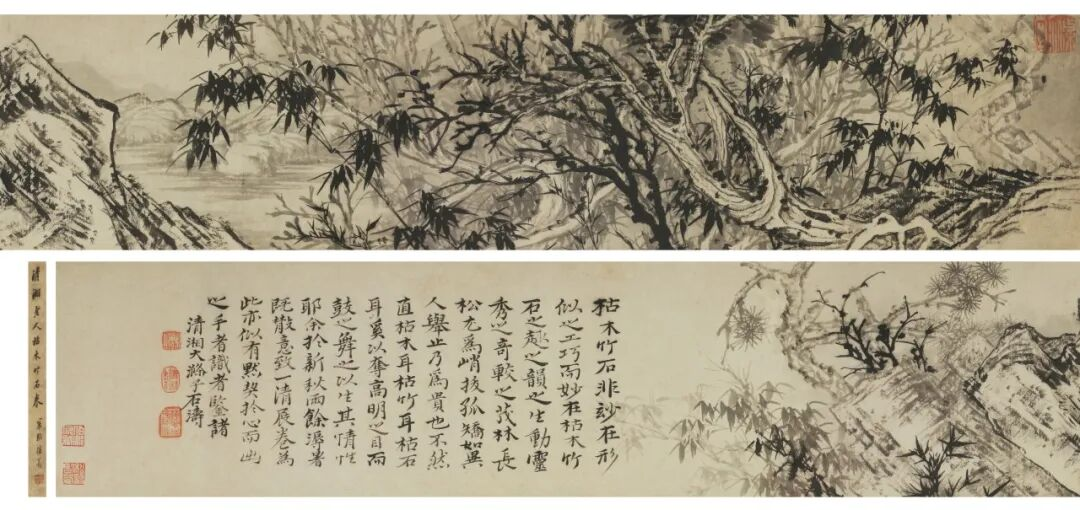 枯木竹石非玅在形
似之工巧而妙在枯木竹
石之趣之韻之生動靈
秀之奇較之茂林長
松尤為峭拔孤矯如異
人舉止乃為貴也不然
直枯木耳枯竹耳枯石
耳奚以奪高明之目而
鼓之舞之以生其情性
耶余於新秋雨餘溽暑
既散意致一清展卷為
此亦似有默契於心而出
之手者識者鑒諸
清湘大滌子石濤
清湘老人枯木竹石卷